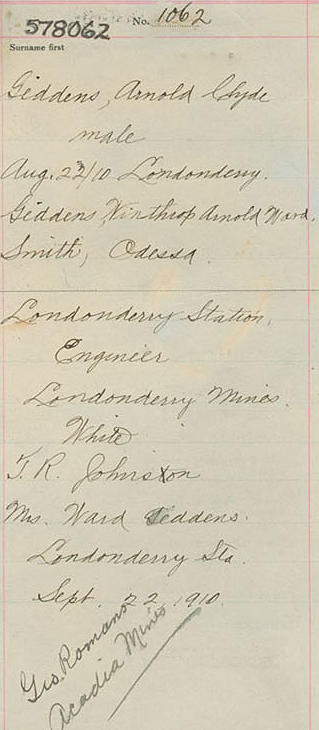 578062 No. 1062
Surname first
Geddens, Arnold Clyde
male
Aug. 22/10 Londonderry.
Geddens, Winthrop Arnold Ward.
Smith, Odessa
Londonderry Station,
Engineer
Londonderry Mines.
White
T. R. Johnston
Mrs. Ward Geddens.
Londonderry Sta.
Sept. 22 1910
Geo. Romans
Acadia Mines